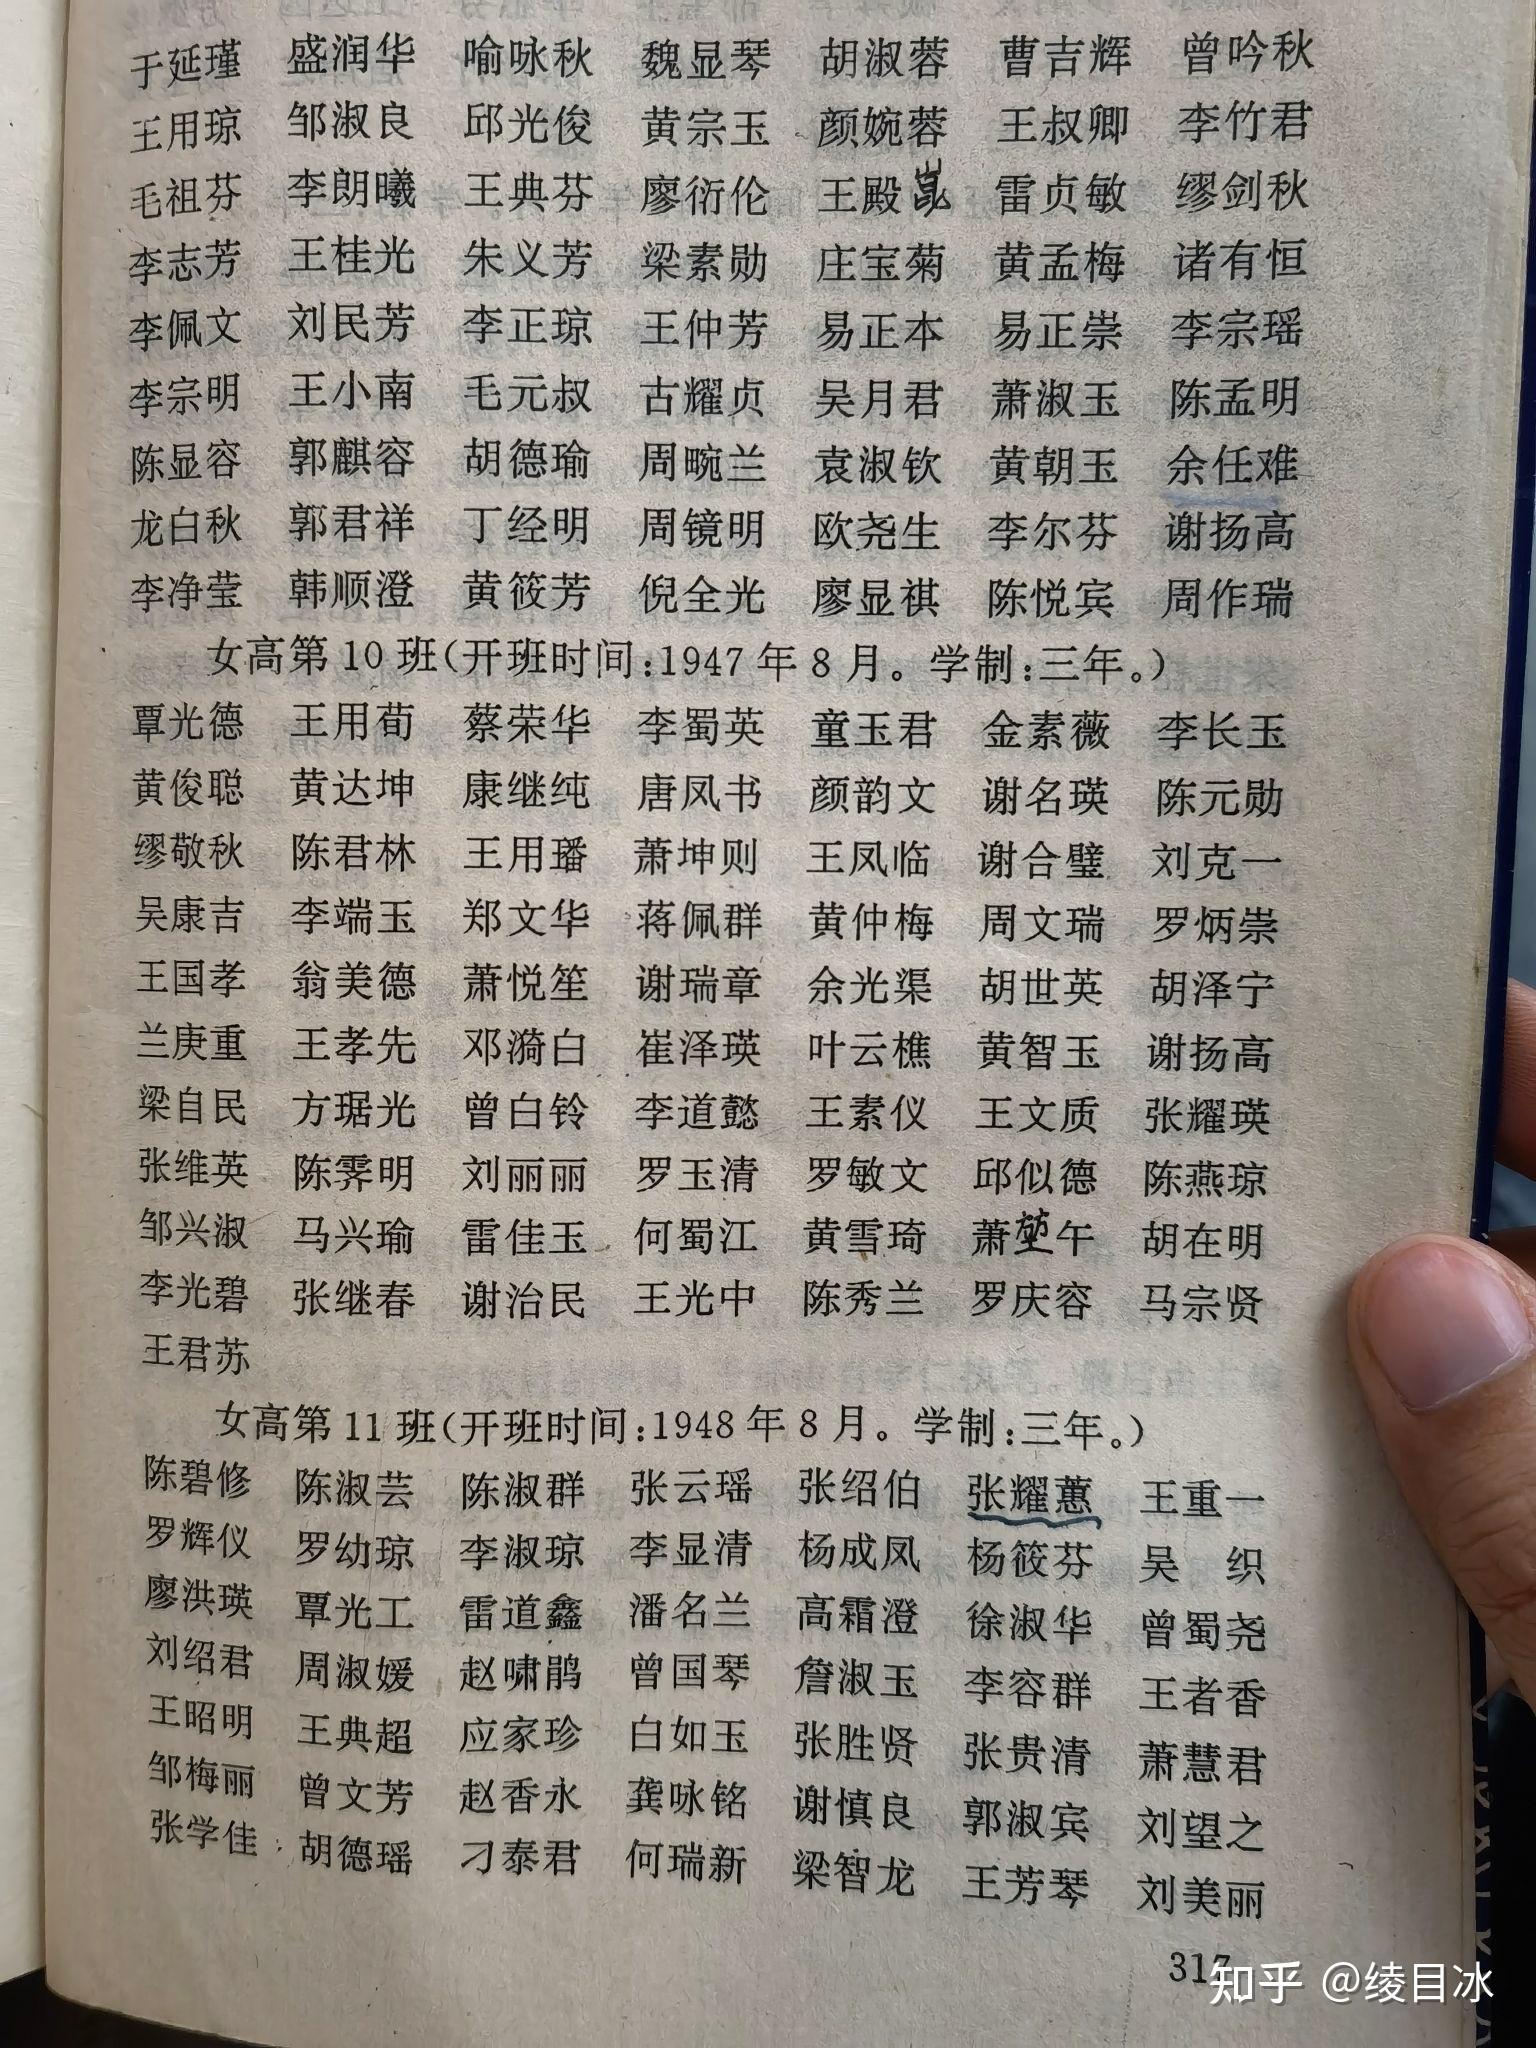 于延瑾 盛润华 喻咏秋 魏显琴 胡淑蓉 曹吉辉 曾吟秋
王用琼 邹淑良 邱光俊 黄宗玉 颜婉蓉 王叔卿 李竹君
毛祖芬 李朗曦 王典芬 廖衍伦 王殿崑 雷贞敏 缪剑秋
李志芳 王桂光 朱义芳 梁素勋 庄宝菊 黄孟梅 诸有恒
李佩文 刘民芳 李正琼 王仲芳 易正本 易正崇 李宗瑶
李宗明 王小南 毛元叔 古耀贞 吴月君 萧淑玉 陈孟明
陈显容 郭麒容 胡德瑜 周畹兰 袁淑钦 黄朝玉 余任难
龙白秋 郭君祥 丁经明 周镜明 欧尧生 李尔芬 谢扬高
李净莹 韩顺澄 黄筱芳 倪全光 廖显祺 陈悦宾 周作瑞
女高第10班(开班时间:1947年8月。学制:三年。)
覃光德 王用荀 蔡荣华 李蜀英 童玉君 金素薇 李长玉
黄俊聪 黄达坤 康继纯 唐凤书 颜韵文 谢名瑛 陈元勋
缪敬秋 陈君林 王用璠 萧坤则 王凤临 谢合璧 刘克一
吴康吉 李端玉 郑文华 蒋佩群 黄仲梅 周文瑞 罗炳崇
王国孝 翁美德 萧悦笙 谢瑞章 余光渠 胡世英 胡泽宁
兰庚重 王孝先 邓漪白 崔泽瑛 叶云樵 黄智玉 谢扬高
梁自民 方琚光 曾白铃 李道懿 王素仪 王文质 张耀瑛
张维英 陈霁明 刘丽丽 罗玉清 罗敏文 邱似德 陈燕琼
邹兴淑 马兴瑜 雷佳玉 何蜀江 黄雪琦 萧 午 胡在明
李光碧 张继春 谢治民 王光中 陈秀兰 罗庆容 马宗贤
王君苏
女高第11班(开班时间:1948年8月。学制:三年。)
陈碧修 陈淑芸 陈淑群 张云瑶 张绍伯 张耀蕙 王重一
罗辉仪 罗幼琼 李淑琼 李显清 杨成凤 杨筱芬 吴 织
廖洪瑛 覃光工 雷道鑫 潘名兰 高霜澄 徐淑华 曾蜀尧
刘绍君 周淑媛 赵啸鹃 曾国琴 詹淑玉 李容群 王者香
王昭明 王典超 应家珍 白如玉 张胜贤 张贵清 萧慧君
邹梅丽 曾文芳 赵香永 龚咏铭 谢慎良 郭淑宾 刘望之
张学佳 胡德瑶 刁泰君 何瑞新 梁智龙 王芳琴 刘美丽
317
知乎 @绫目冰